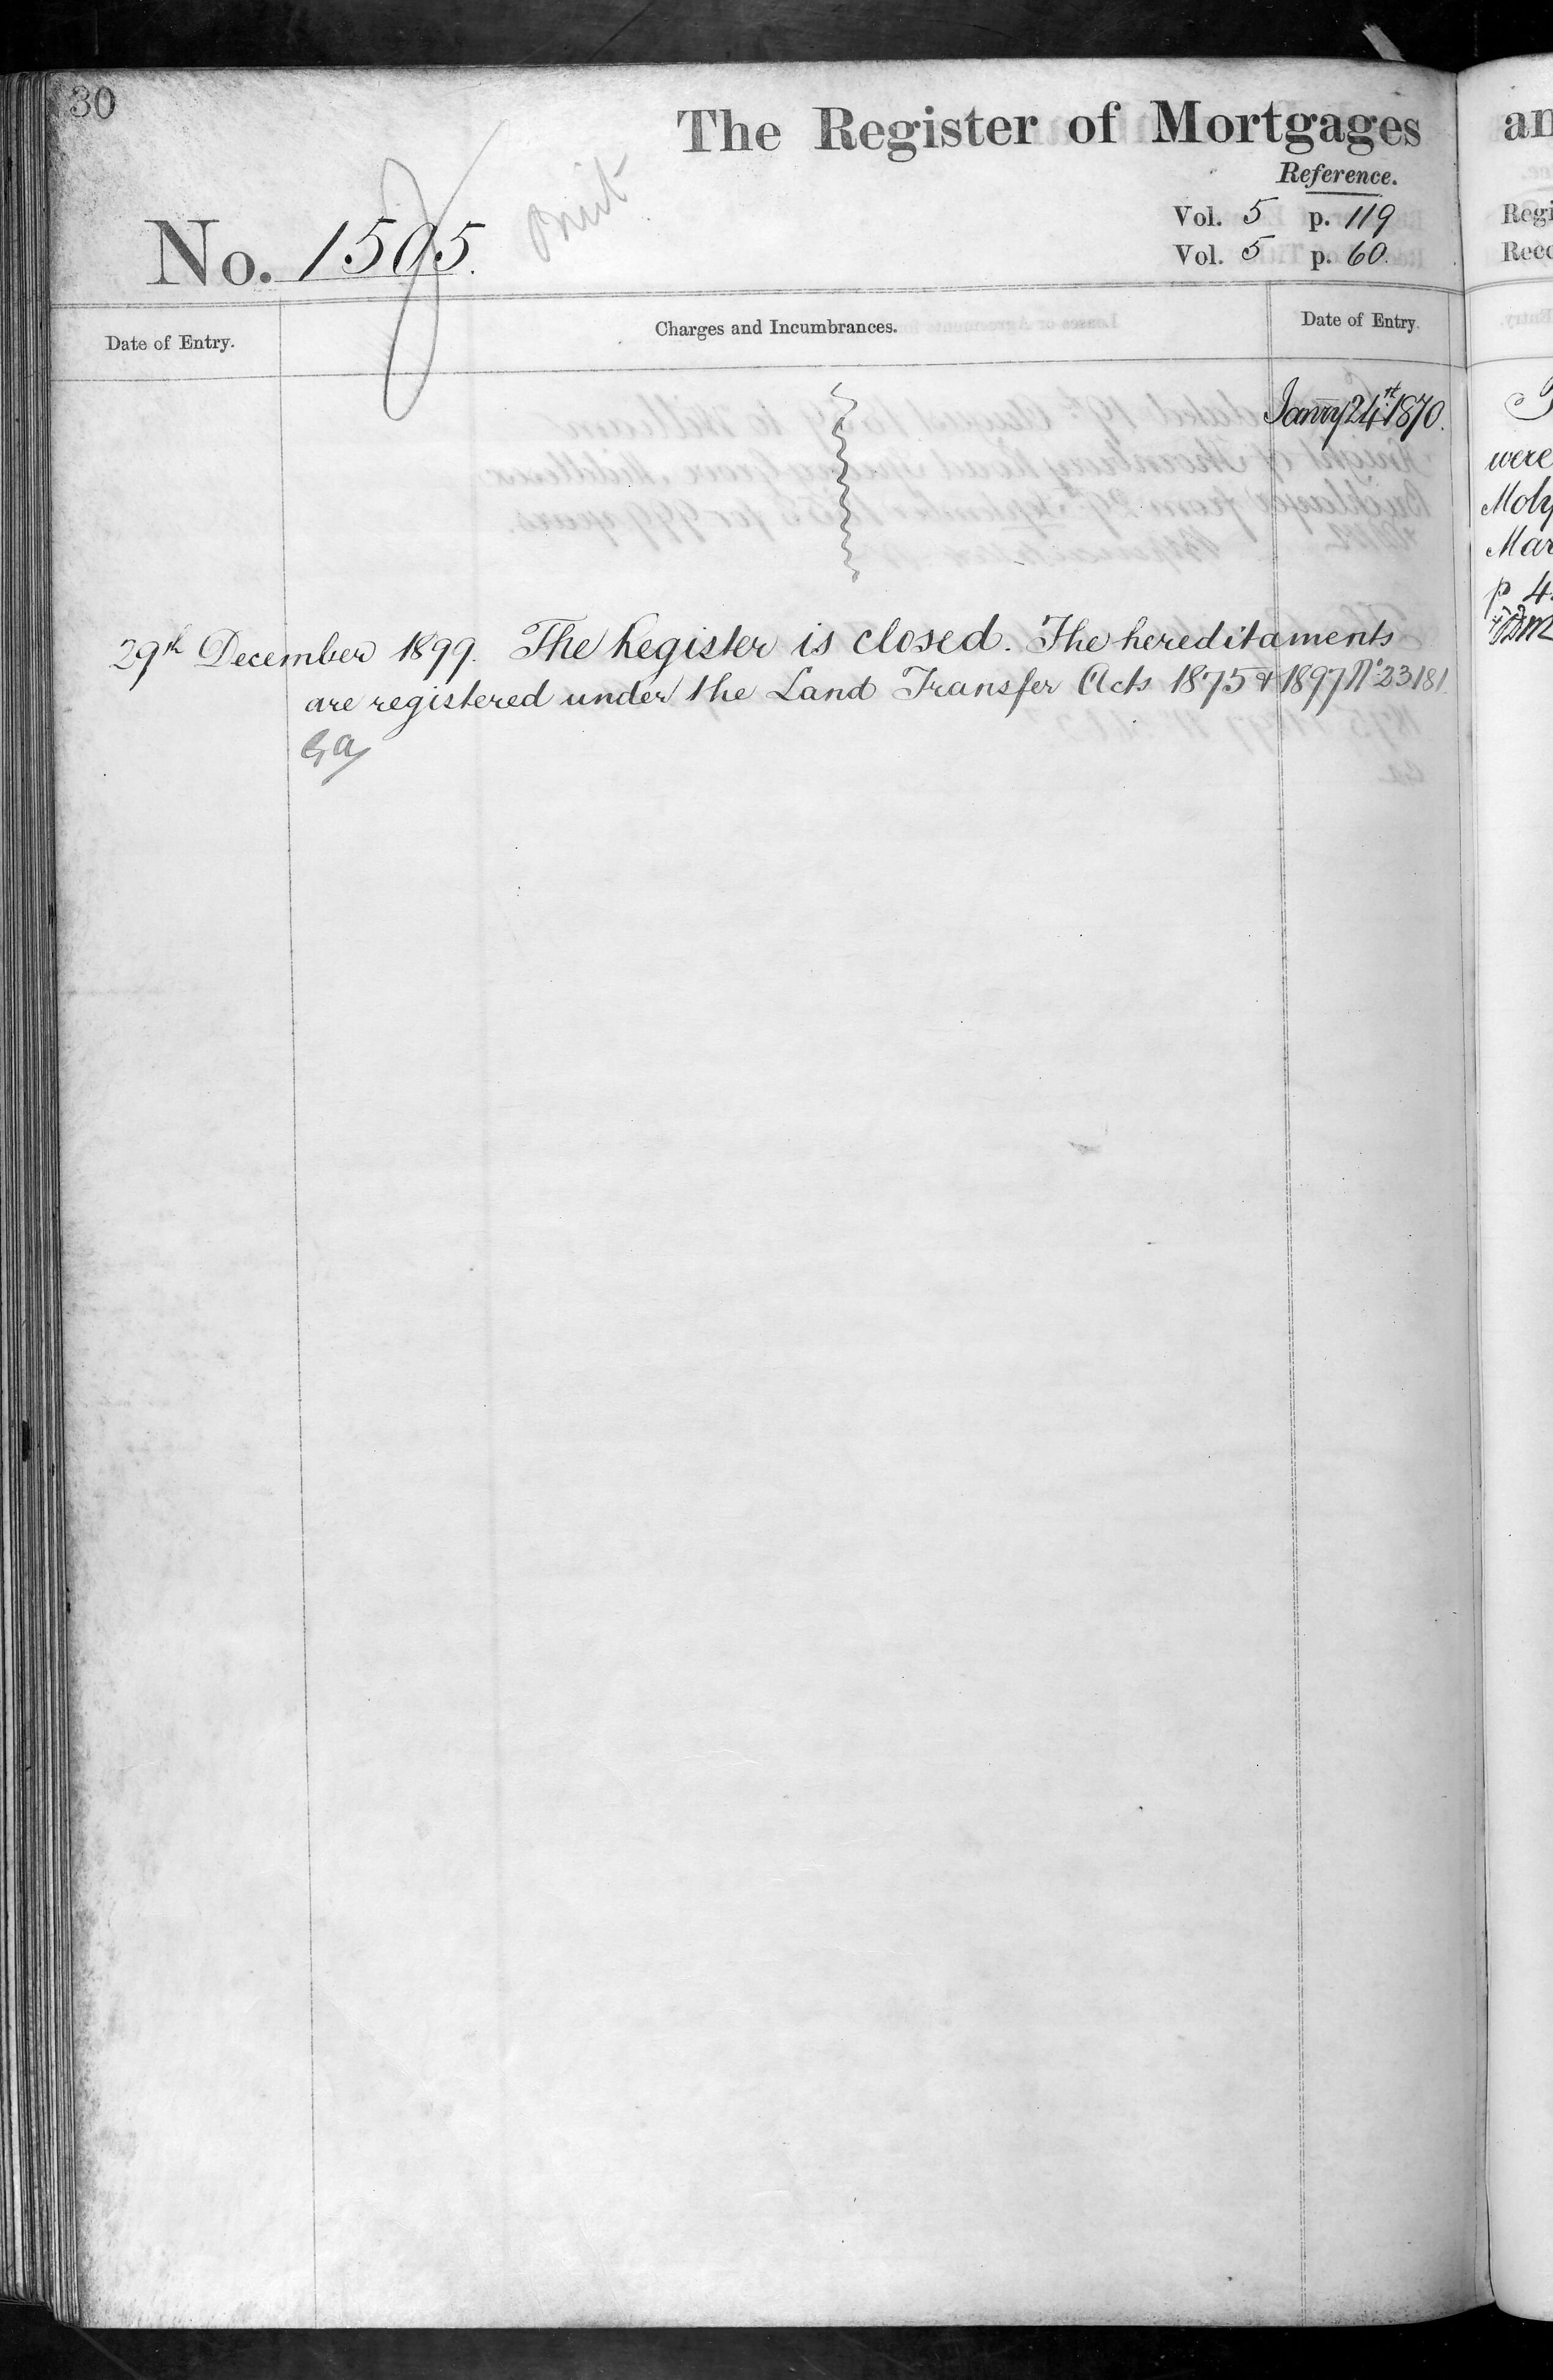 30
The Register of Mortgages
Reference.
Vol. 5 p. 119
Vol. 5 p. 60.
No. 1505.
Date of Entry.
Charges and Incumbrances.
Date of Entry.
Janry 24st 1870.
29th December 1899. The Register is closed. The hereditaments
are registered under the Land Transfer Acts 1875 & 1897 No 23181.
an
Regi
Reco
were
Moly
Mar
p 4